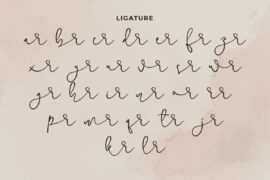 LIGATURE
ar br cr dr er fr zr
xr yr ur vr sr wr
gr hr ir nr or rr
pr mr qr tr jr
kr lr